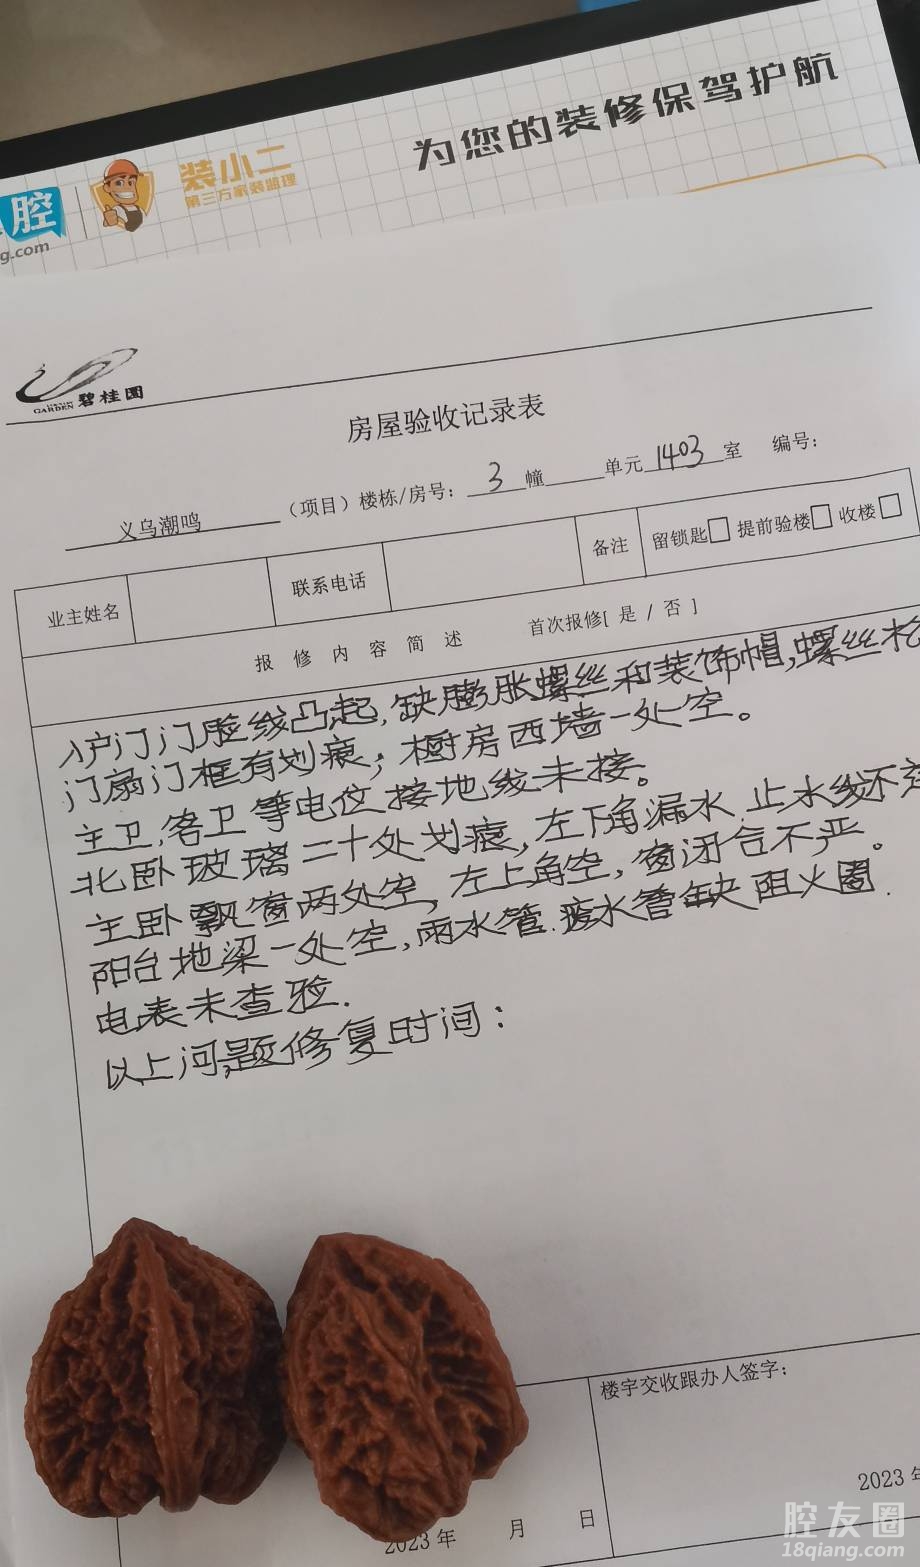 为您的装修保驾护航
腔
装小二
第三方家装监理
g.com
GARDEN 碧桂园
房屋验收记录表
义乌潮鸣（项目）楼栋/房号：3幢 单元1403室 编号：
业主姓名 联系电话 备注 留锁匙□ 提前验楼□ 收楼□
报修内容简述 首次报修[ 是 / 否 ]
入户门门脸线凸起，缺膨胀螺丝和装饰帽，螺丝松
门扇门框有划痕；橱房西墙一处空。
主卫，客卫等电位接地线未接。
北卧玻璃二十处划痕，左下角漏水，止水线不
主卧飘窗两处空，左上角空，窗闭合不严。
阳台地梁一处空，雨水管.废水管缺阻火圈.
电表未查验.
以上问题修复时间：
楼宇交收跟办人签字：
2023年 月 日
2023年
腔友圈
18qiang.com